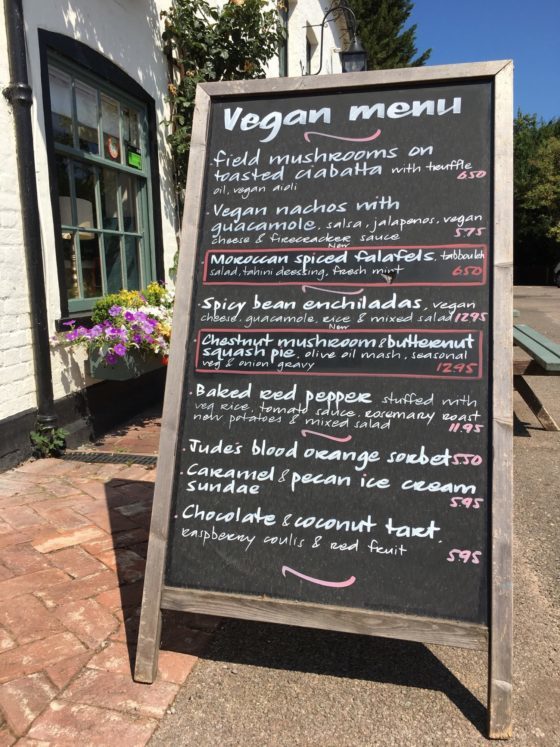 Vegan menu
field mushrooms on
toasted ciabatta with truffle 650
oil, vegan aioli
Vegan nachos with
guacamole, salsa, jalapenos, vegan 575
cheese & firecracker sauce
New
Moroccan spiced falafels, tabbouleh
salad, tahini dressing, fresh mint 650
Spicy bean enchiladas, vegan
cheese, guacamole, rice & mixed salad 1295
New
Chestnut mushroom & butternut
squash pie, olive oil mash, seasonal
veg & onion gravy 1295
Baked red pepper stuffed with
veg rice, tomato sauce, rosemary roast
new potatoes & mixed salad 11.95
Jude's blood orange sorbet 550
Caramel & pecan ice cream
sundae 5.95
Chocolate & coconut tart,
raspberry coulis & red fruit 5.95